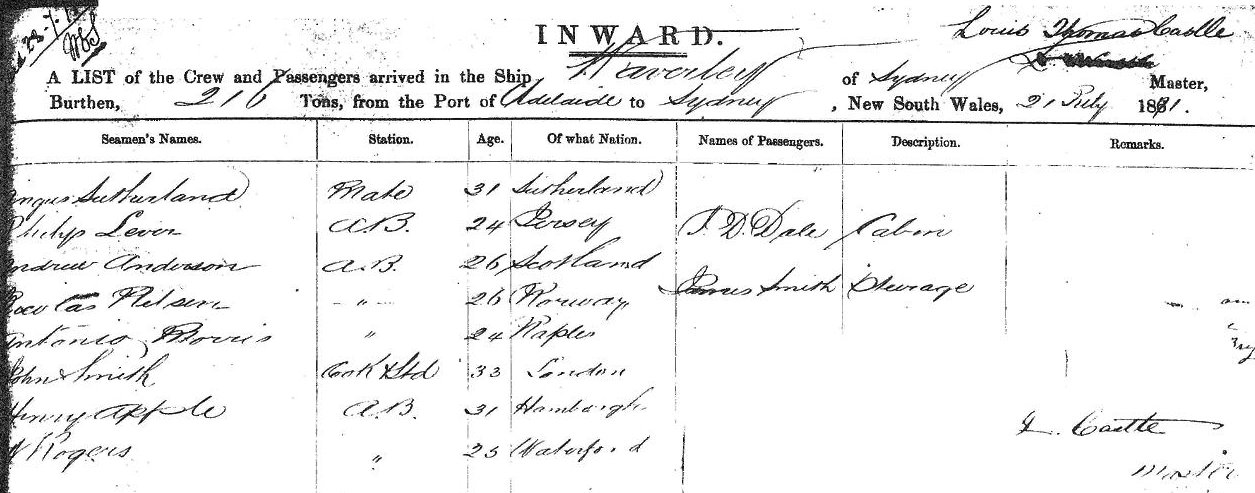 28.7.
INWARD.
Louis Thomas Castle
A LIST of the Crew and Passengers arrived in the Ship Waverley of Sydney Master,
Burthen, 216 Tons, from the Port of Adelaide to Sydney, New South Wales, 21 July 1871.
Seamen's Names. Station. Age. Of what Nation. Names of Passengers. Description. Remarks.
Angus Sutherland Mate 31 Sutherland
Philip Lever A.B. 24 Jersey J. D. Dale Cabin
Andrew Anderson A.B. 26 Scotland
Nilsen -"- 26 Norway James Smith Sterage
Antonio Morris " 24 Naples
John Smith Cook & Std 33 London
Henry Apple A.B. 31 Hamburgh
Rogers " 25 Waterford
L. Castle
Master